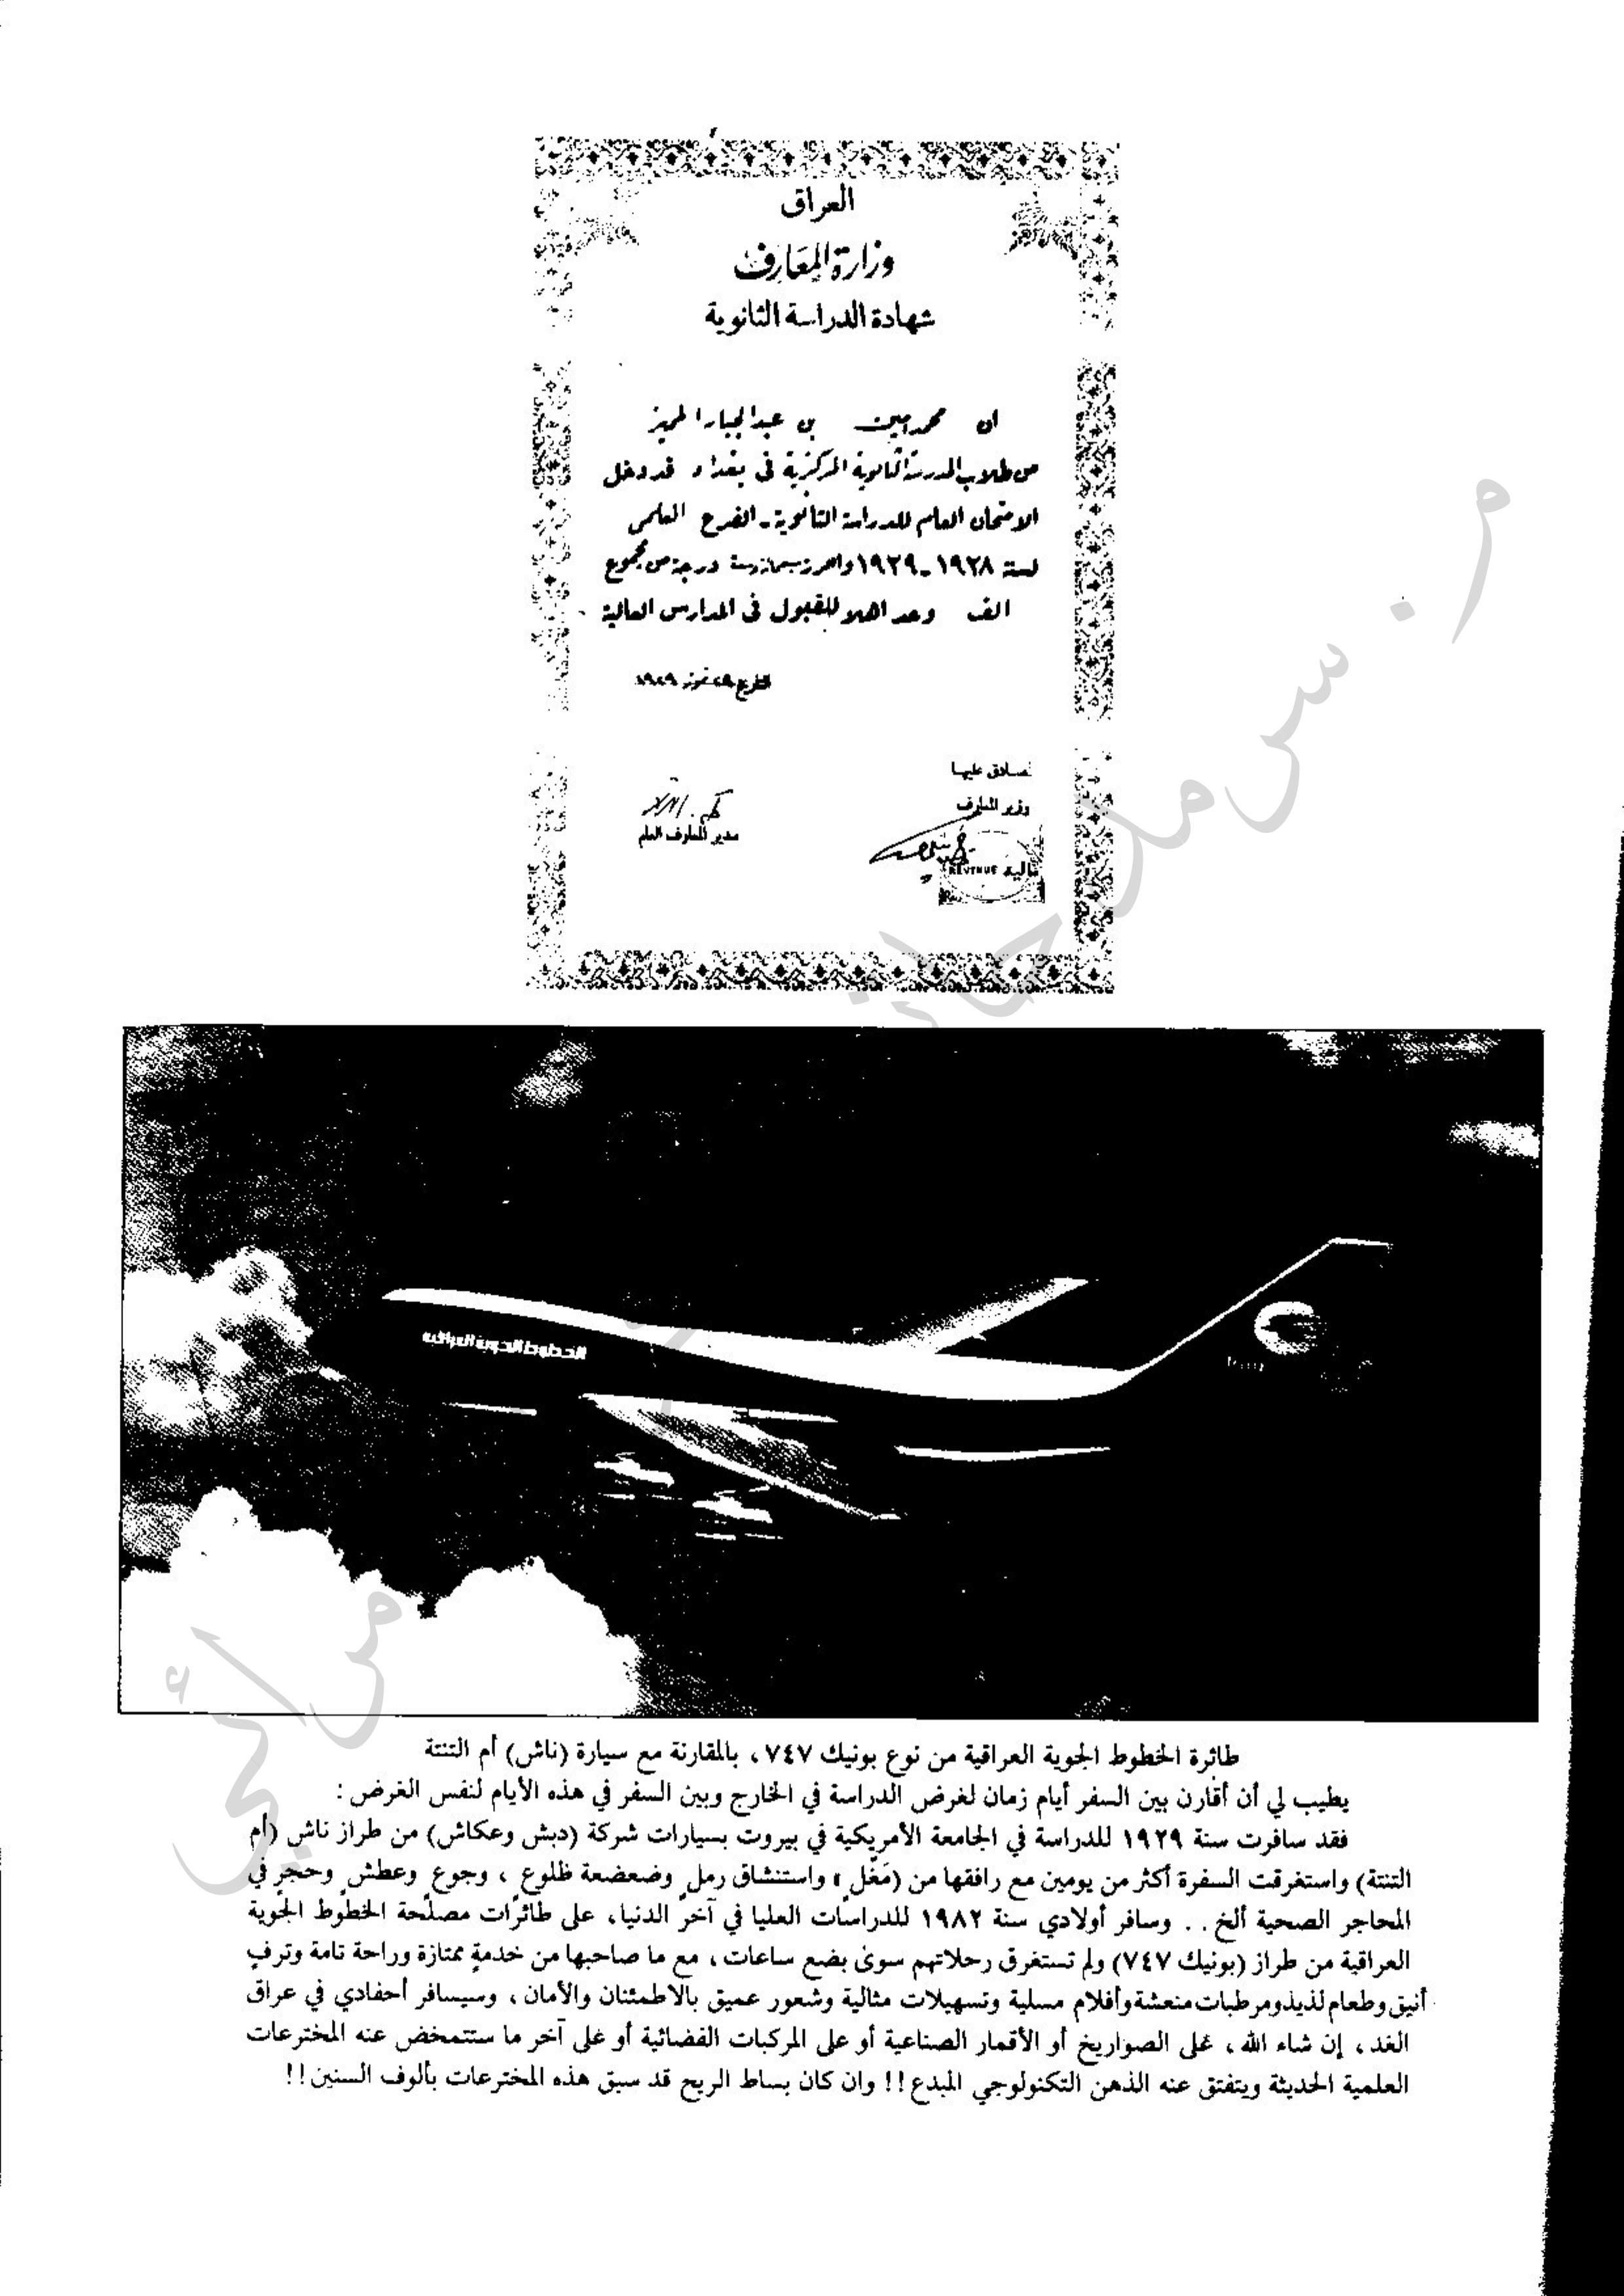 العراق
وزارة المعارف
شهادة الدراسة الثانوية
ان محمد امين بن عبد الجبار المميز
من طلاب المدرسة الثانوية المركزية في بغداد قد دخل
الامتحان العام للدراسة الثانوية - الفرع العلمي
لسنة ١٩٢٨-١٩٢٩ واحرز درجة من مجموع
الف وعد اهلا للقبول في المدارس العالية
التاريخ ٢٩ تموز ١٩٢٩
نصادق عليها
وزير المعارف
مدير المعارف العام
REVENUE مالية
الخطوط الجوية العراقية
طائرة الخطوط الجوية العراقية من نوع بونيك ٧٤٧ ، بالمقارنة مع سيارة (ناش) أم التنتة
يطيب لي أن أقارن بين السفر أيام زمان لغرض الدراسة في الخارج وبين السفر في هذه الأيام لنفس الغرض :
فقد سافرت سنة ١٩٢٩ للدراسة في الجامعة الأمريكية في بيروت بسيارات شركة (دبش وعكاش) من طراز ناش (أم
التنتة) واستغرقت السفرة أكثر من يومين مع رافقها من (مَغَلٍ) واستنشاق رملٍ وضعضعة ظلوعٍ ، وجوعٍ وعطشٍ وحجزٍ في
المحاجر الصحية ألخ . . وسافر أولادي سنة ١٩٨٢ للدراسات العليا في آخر الدنيا، على طائرات مصلحة الخطوط الجوية
العراقية من طراز (بونيك ٧٤٧) ولم تستغرق رحلاتهم سوى بضع ساعات ، مع ما صاحبها من خدمةٍ ممتازة وراحة تامة وترفٍ
أنيق وطعام لذيذ ومرطبات منعشة وأفلام مسلية وتسهيلات مثالية وشعور عميق بالاطمئنان والأمان ، وسيسافر أحفادي في عراق
الغد ، إن شاء الله ، على الصواريخ أو الأقمار الصناعية أو على المركبات الفضائية أو على آخر ما ستتمخض عنه المخترعات
العلمية الحديثة ويتفتق عنه الذهن التكنولوجي المبدع!! وان كان بساط الريح قد سبق هذه المخترعات بألوف السنين!!